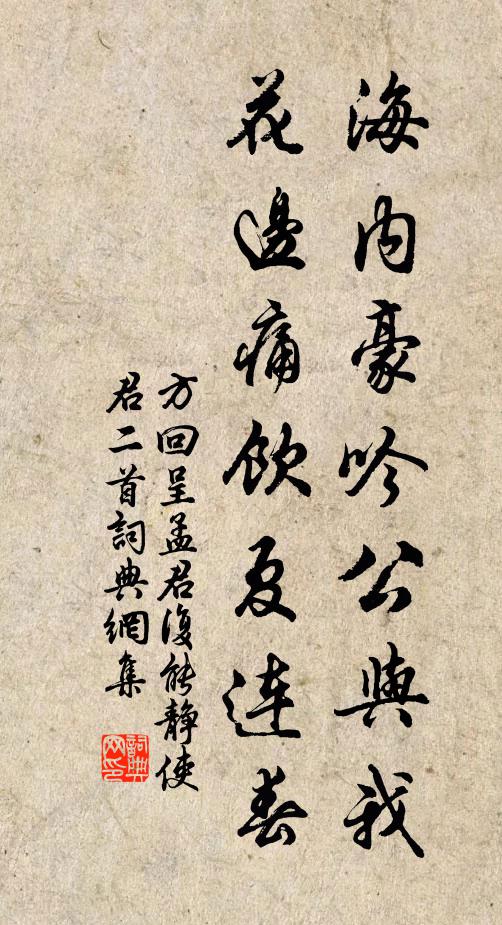 海内豪吟公與我
花邊痛飲夏連春
方回呈孟君復能靜使
君二首詞典網集
詞典
网印